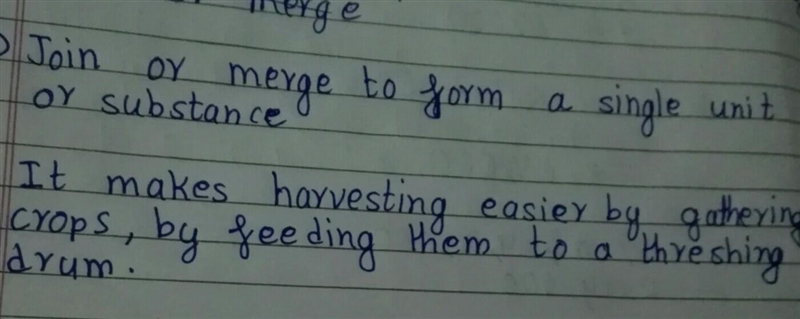 merge
Join or merge to form a single unit
or substance
It makes harvesting easier by gathering
crops, by feeding them to a threshing
drum.